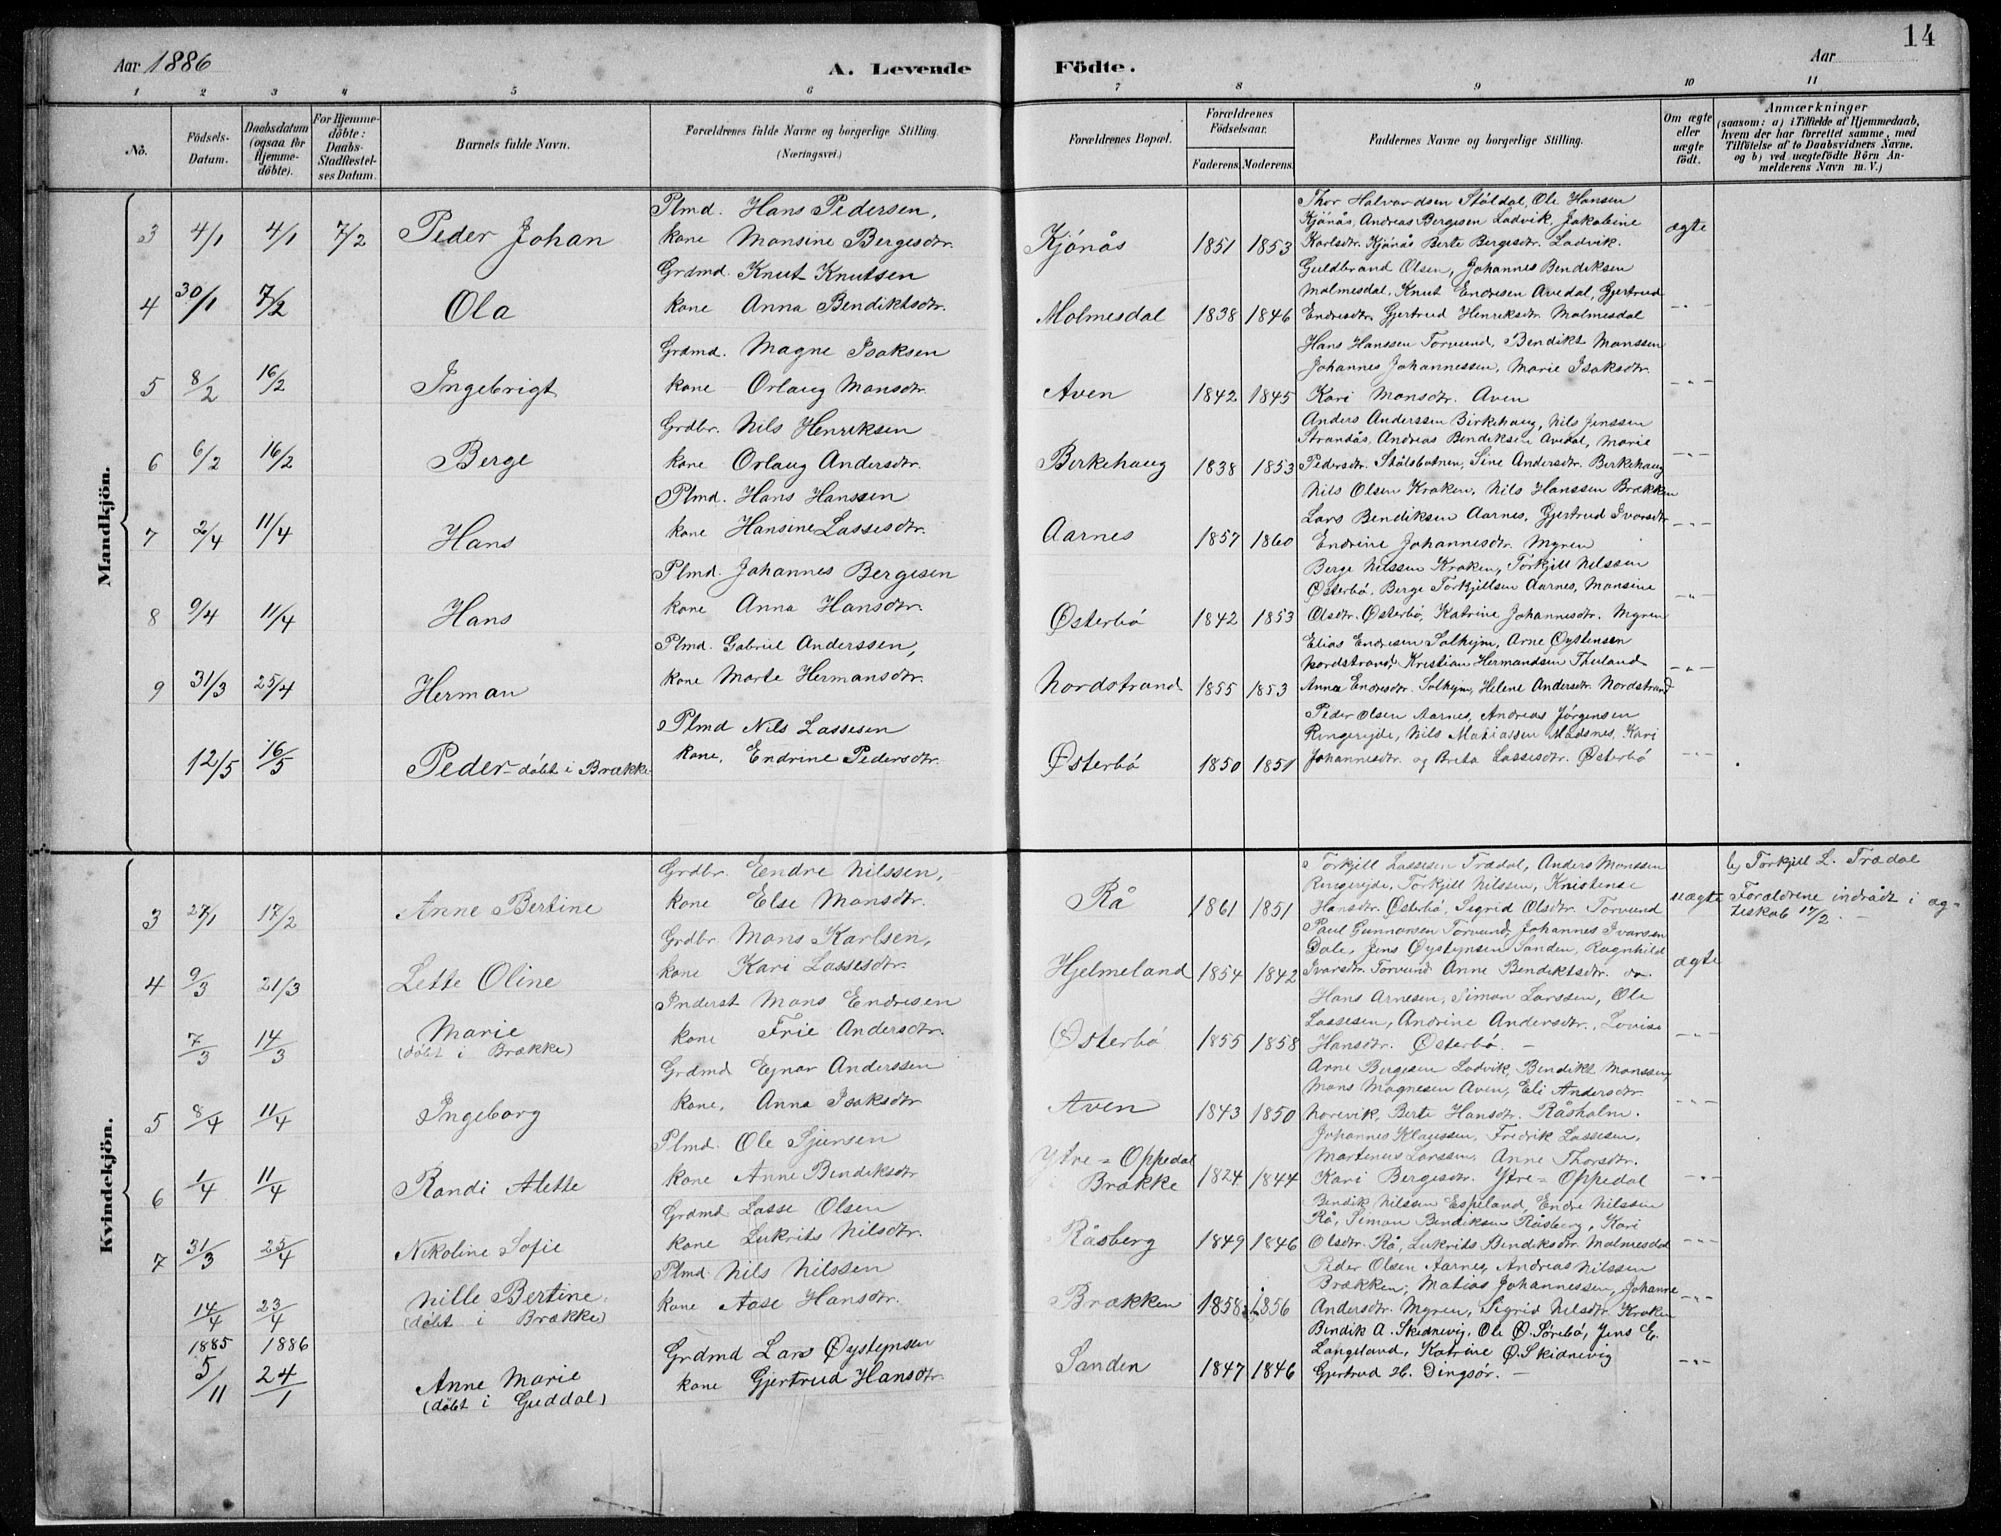 Aar 1886
A. Levende Födte.
Aar
14
1 2 3 4 5 6 7 8 9 10 11
No.
Födsels-Datum.
Daabsdatum (ogsaa for Hjemmedöbte).
For Hjemmedöbte: Daabs-Stadfæstelses Datum.
Barnets fulde Navn.
Forældrenes fulde Navne og borgerlige Stilling. (Næringsvei.)
Forældrenes Bopæl.
Forældrenes Födselsaar.
Faderens. Moderens.
Faddernes Navne og borgerlige Stilling.
Om ægte eller uægte født.
Anmærkninger
(saasom: a) i Tilfælde af Hjemmedaab, hvem der har forrettet samme, med Tilföielse af to Daabsvidners Navne. og b) ved uægtefödte Börn Anmelderens Navn m. V.)
Mandkjön.
3 4/1 4/1 7/2 Peder Johan
Plmd. Hans Pedersen,
kone Mansine Bergesdtr.
Kjønås 1851 1853
Thor Halvardsen Støldal, Ole Hansen
Kjønås, Andreas Bergesen Ladvik, Jakobine
Karlsdtr. Kjønås Berte Bergesdtr. Ladvik.
ægte
4 30/1 7/2 Ola
Grdmd. Knut Knutsen
kone Anna Bendiktsdtr.
Molmesdal 1838 1846
Guldbrand Olsen, Johannes Bendiksen
Malmesdal, Knut Endresen Avedal, Gjertrud
Endresdtr. Gjertrud Henriksdtr. Malmesdal
-"-
5 8/2 16/2 Ingebrigt
Grdmd. Magne Isaksen
kone Orlaug Monsdtr.
Aven 1842 1845
Hans Hanssen Torvund, Bendikt Monssen
Johannes Johannessen, Marie Isaksdtr.
Kari Monsdtr. Aven
-"-
6 6/2 16/2 Berge
Grdbr. Nils Henriksen
kone Orlaug Andersdtr.
Birkehaug 1838 1853
Anders Anderssen Birkehaug, Nils Jenssen
Strandås, Andreas Bendiksen Avedal, Marie
Pedersdtr. Stølsbotnen, Sine Andersdtr. Birkehaug
-"-
7 2/4 11/4 Hans
Plmd. Hans Hanssen
kone Hansine Lassesdtr.
Aarnes 1857 1860
Nils Olsen Kraken, Nils Hanssen Brækken
Lars Bendiksen Aarnes, Gjertrud Ivarsdtr
Endrine Johannesdtr. Myren
-"-
8 9/4 11/4 Hans
Plmd. Johannes Bergesen
kone Anna Hansdtr.
Østerbø 1842 1853
Berge Nilssen Kraken, Torkjill Nilssen
Østerbø, Berge Torkjillsen Aarnes, Mansine
Olsdtr. Østerbø, Katrine Johannesdtr. Myren
-"-
9 31/3 25/4 Herman
Plmd. Gabriel Anderssen,
kone Marte Hermansdtr.
Nordstrand 1855 1853
Elias Endresen Solhejm, Arne Øystensen
Nordstrand, Kristian Hermandsen Thuland
Anna Endresdtr. Solhejm, Helene Andersdtr. Nordstrand
-"-
12/5 16/5 Peder - døbt i Brække
Plmd Nils Lassesen
kone, Endrine Pedersdtr.
Østerbø 1850 1851
Peder Olsen Aarnes, Andreas Jørgensen
Ringerejde, Nils Matiassen Madsnes, Kari
Johannesdtr. og Brita Lassesdtr. Østerbø
-"-
Kvindekjön.
3 27/1 17/2 Anne Bertine
Grdbr. Endre Nilssen,
kone Else Monsdtr.
Rå 1861 1851
Torkjill Lassesen Trædal, Anders Monssen
Ringerejde, Torkjill Nilssen, Kristense
Hansdtr. Østerbø, Sigrid Olsdtr. Torvund
uægte
b) Torkjell L. Trædal
Forældrene indtrådt i ægteskab 17/2. -
4 9/3 21/3 Lette Oline
Grdbr Mons Karlsen,
kone Kari Lassesdtr.
Hjelmeland 1854 1842
Paul Gunnarsen Torvund, Johannes Ivarsen
Dale, Jens Øystejnsen Sanden, Ragnhild
Ivarsdtr. Torvund Anne Bendiktsdtr.
ægte
7/3 14/3 Marie
(døbt i Brække)
Inderst Mons Endresen
kone Frie Andersdtr.
Østerbø 1855 1858
Hans Arnesen, Simon Larssen, Ole
Lassesen, Andrine Andersdtr. Lovise
Hansdtr. Østerbø. -
-"-
5 8/4 11/4 Ingeborg
Grdmd Ejnar Anderssen
kone, Anna Isaksdtr
Aven 1843 1850
Arne Bergesen Ladvik, Bendikt Monssen,
Mons Magnesen Aven, Eli Andersdtr.
Norevik, Berte Hansdtr. Råsholm.
-"-
6 1/4 11/4 Randi Alette
Plmd. Ole Sjursen
kone Anne Bendiksdtr
Ytre-Oppedal
Brække 1824 1844
Johannes Klaussen, Fredrik Lassesen,
Martenus Larssen, Anne Thorsdtr.
Kari Bergesdtr. Ytre-Oppedal
-"-
7 31/3 25/4 Nikoline Sofie
Grdmd Lasse Olsen
kone Lukrits Nilsdtr.
Råsberg 1849 1846
Bendik Nilssen Espeland, Endre Nilssen
Rå, Simon Bendiksen Råsberg, Kari
Olsdtr. Rå, Lukrits Bendiksdtr. Malmesdal
-"-
14/4 23/4 Nille Bertine.
(døbt i Brække)
Plmd. Nils Nilssen
kone Aase Hansdtr.
Brækken 1858 1856
Peder Olsen Aarnes, Andreas Nilssen
Brækken, Matias Johannessen, Johanne
Andersdtr. Myren, Sigrid Nilsdtr. Kraken
-"-
1885 1886
5/11 24/1 Anne Marie
(døbt i Guddal)
Grdmd Lars Øystejnsen
kone Gjertrud Hansdtr.
Sanden 1847 1846
Bendik A. Skidnevig, Ole Ø. Sørebø, Jens E.
Langeland, Katrine Ø. Skidnevig
Gjertrud H. Dingsør. -
-"-